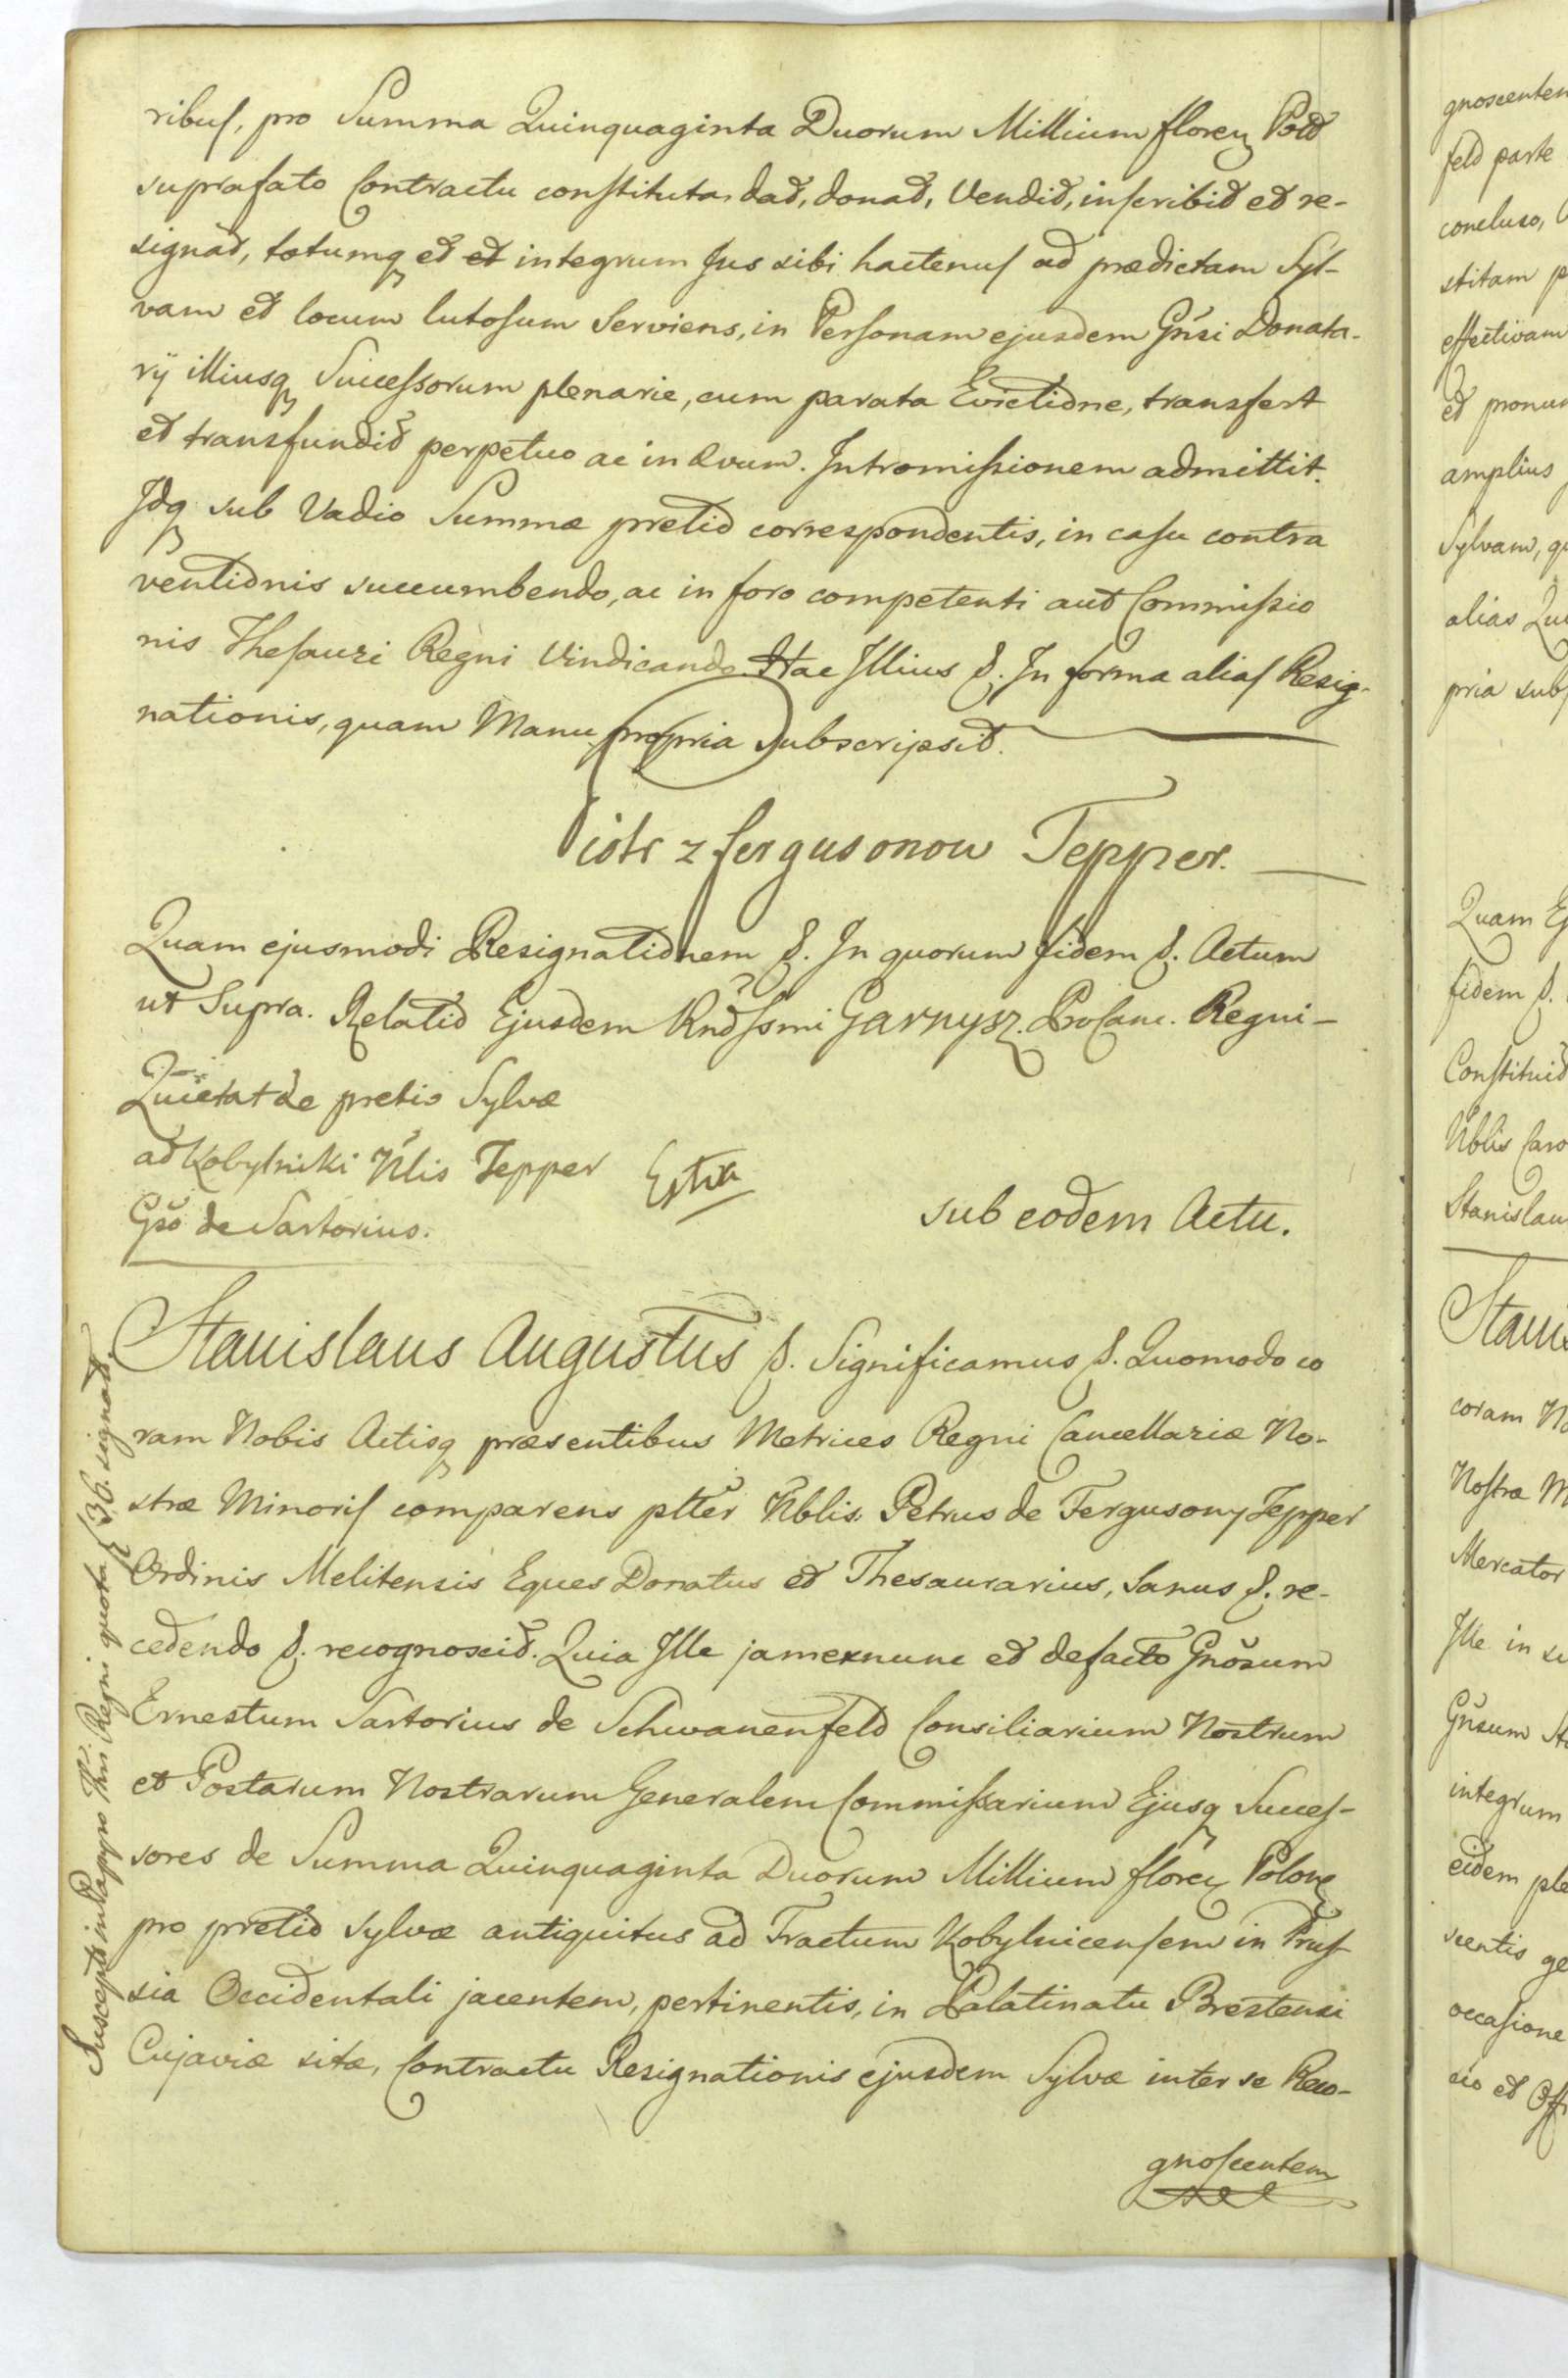 ribus, pro Summa Quinquaginta Duorum Millium floren Pold
suprafato Contractu constituta, dat, donat, Vendit, inscribit et re-
signat, totumq et et integrum Jus sibi hactenus ad prædictam Syl-
vam et locum lutosum Serviens, in Personam ejusdem Gnsi Donata-
rij illiusq Successorum plenarie, cum parata Evictione, transfert
et transfundit perpetuo ac in ævum. Intromissionem admittit.
Idq sub Vadio Summæ pretio correspondentis, in casu contra
ventionis succumbendo, ac in foro competenti aut Commissio
nis Thesauri Regni Vindicando. Hac Illius &. In forma alias Resig-
nationis, quam Manu propria Subscripsit.
Piotr z fergusonow Tepper.
Quam ejusmodi Resignationem &. In quorum fidem &. Actum
ut Supra. Relatio Ejusdem Rndssmi Garnysz. ProCanc. Regni-
Quietat de pretio Sylvæ
ad Kobylniki Nlis Tepper
Gso de Sartorius.
Extr
sub eodem Actu.
Stanislaus Augustus &. Significamus &. Quomodo co
ram Nobis Actisq præsentibus Metrices Regni Cancellariæ No-
stræ Minoris comparens plter Nblis. Petrus de Fergusony Tepper
Ordinis Melitensis Eques Donatus et Thesaurarius, Sanus &. re-
cedendo &. recognoscit. Quia Ille jamexnunc et defacto Gnosum
Ernestum Sartorius de Schwanenfeld Consiliarium Nostrum
et Postarum Nostrarum Generalem Commissarium Ejusq Succes-
sores de Summa Quinquaginta Duorum Millium floren Polon
pro pretio Sylvæ antiquitus ad Tractum Kobylnicensem in Prus-
sia Occidentali jacentem, pertinentis, in Palatinatu Brestensi
Cujaviæ sitæ, Contractu Resignationis ejusdem Sylvæ inter se Reco-
gnoscentem
Suscepta in Papyro Thri Regni quota f 36. signat.
gnoscentem
feld parte
concluso,
stitam
effectivam
et
amplius
Sylvam,
alias
pria
Quam
fidem &.
Constituit
Nblis
Stanislau
coram
Nostræ
Mercator
Ille in
Gnsum
integrum
eidem
scentis
occasione
et